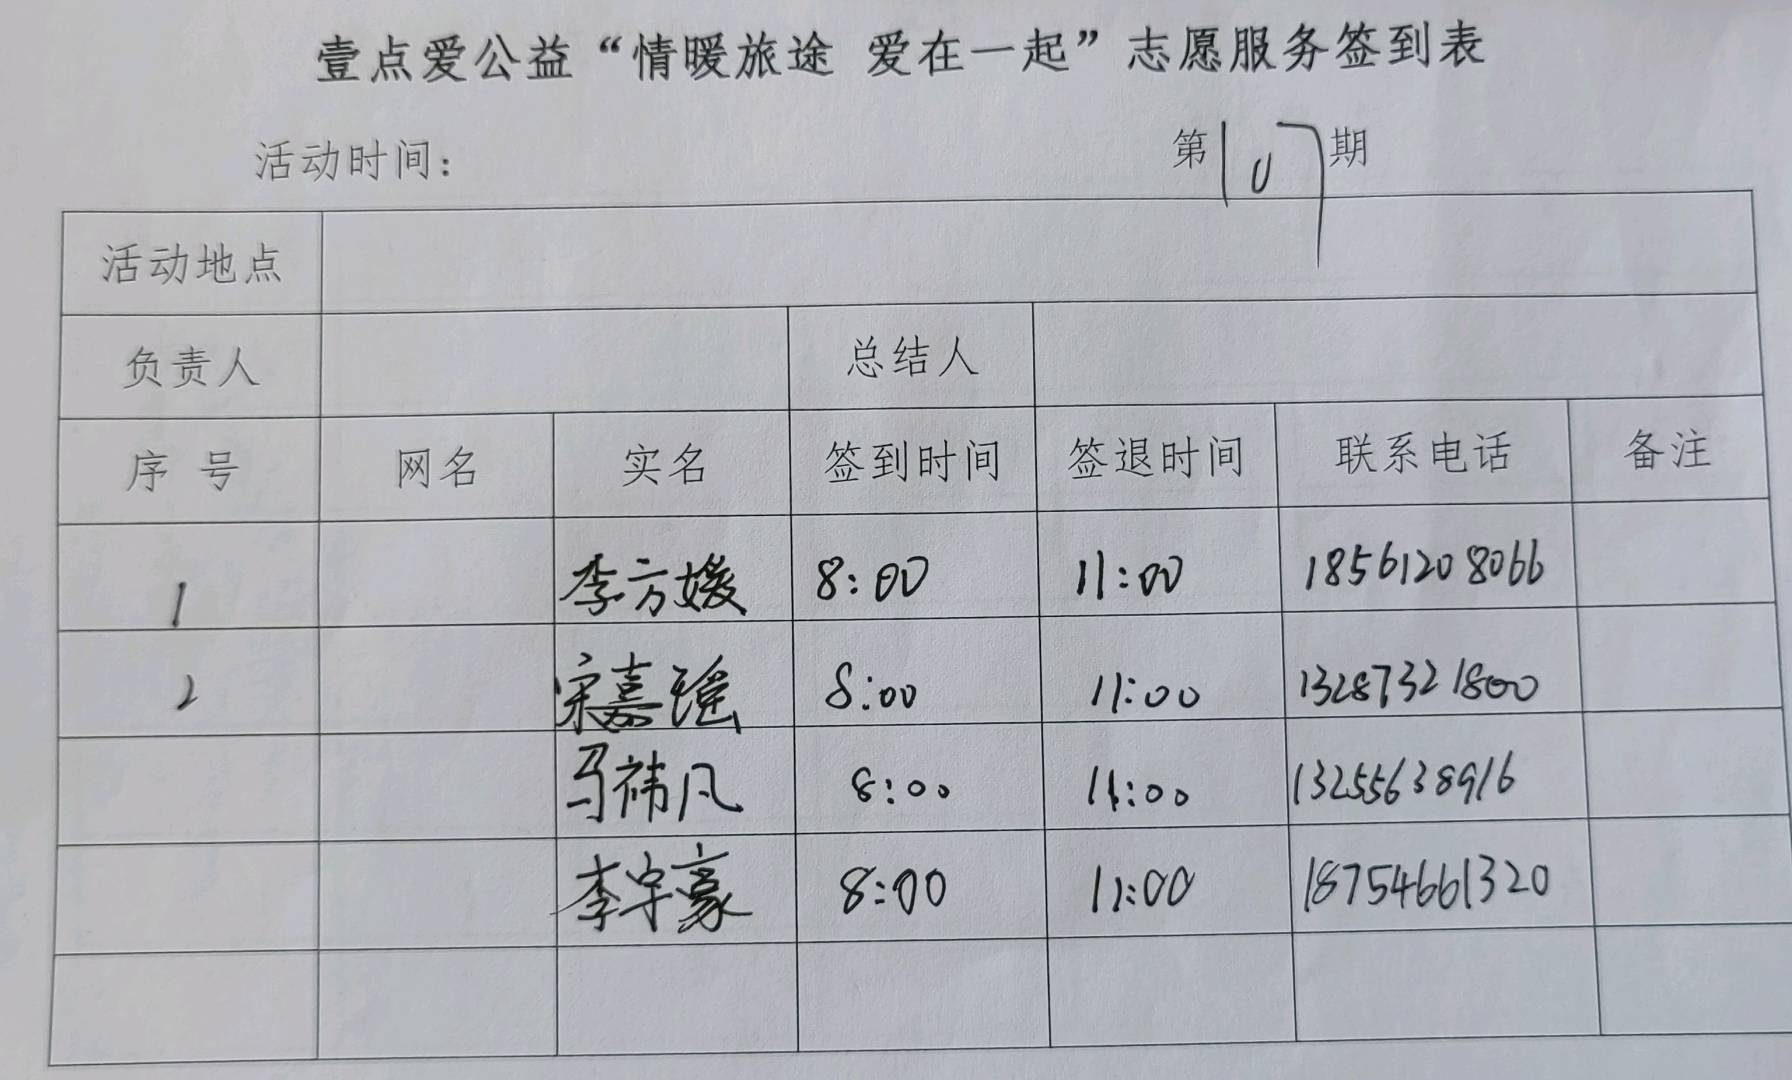 壹点爱公益“情暖旅途 爱在一起”志愿服务签到表
活动时间： 第107期
活动地点
负责人 总结人
序 号 网名 实名 签到时间 签退时间 联系电话 备注
1 李方媛 8:00 11:00 18561208066
2 宋嘉瑶 8:00 11:00 13287321800
马祎凡 8:00 11:00 13255638916
李宇豪 8:00 11:00 18754661320